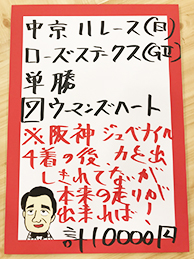 中京11レース(日)
ローズステークス(GⅡ)
単勝
7ウーマンズハート
※阪神ジュベナイル
4着の後、力を出
しきれてないが
本来の走りが
出来れば!
計10000円